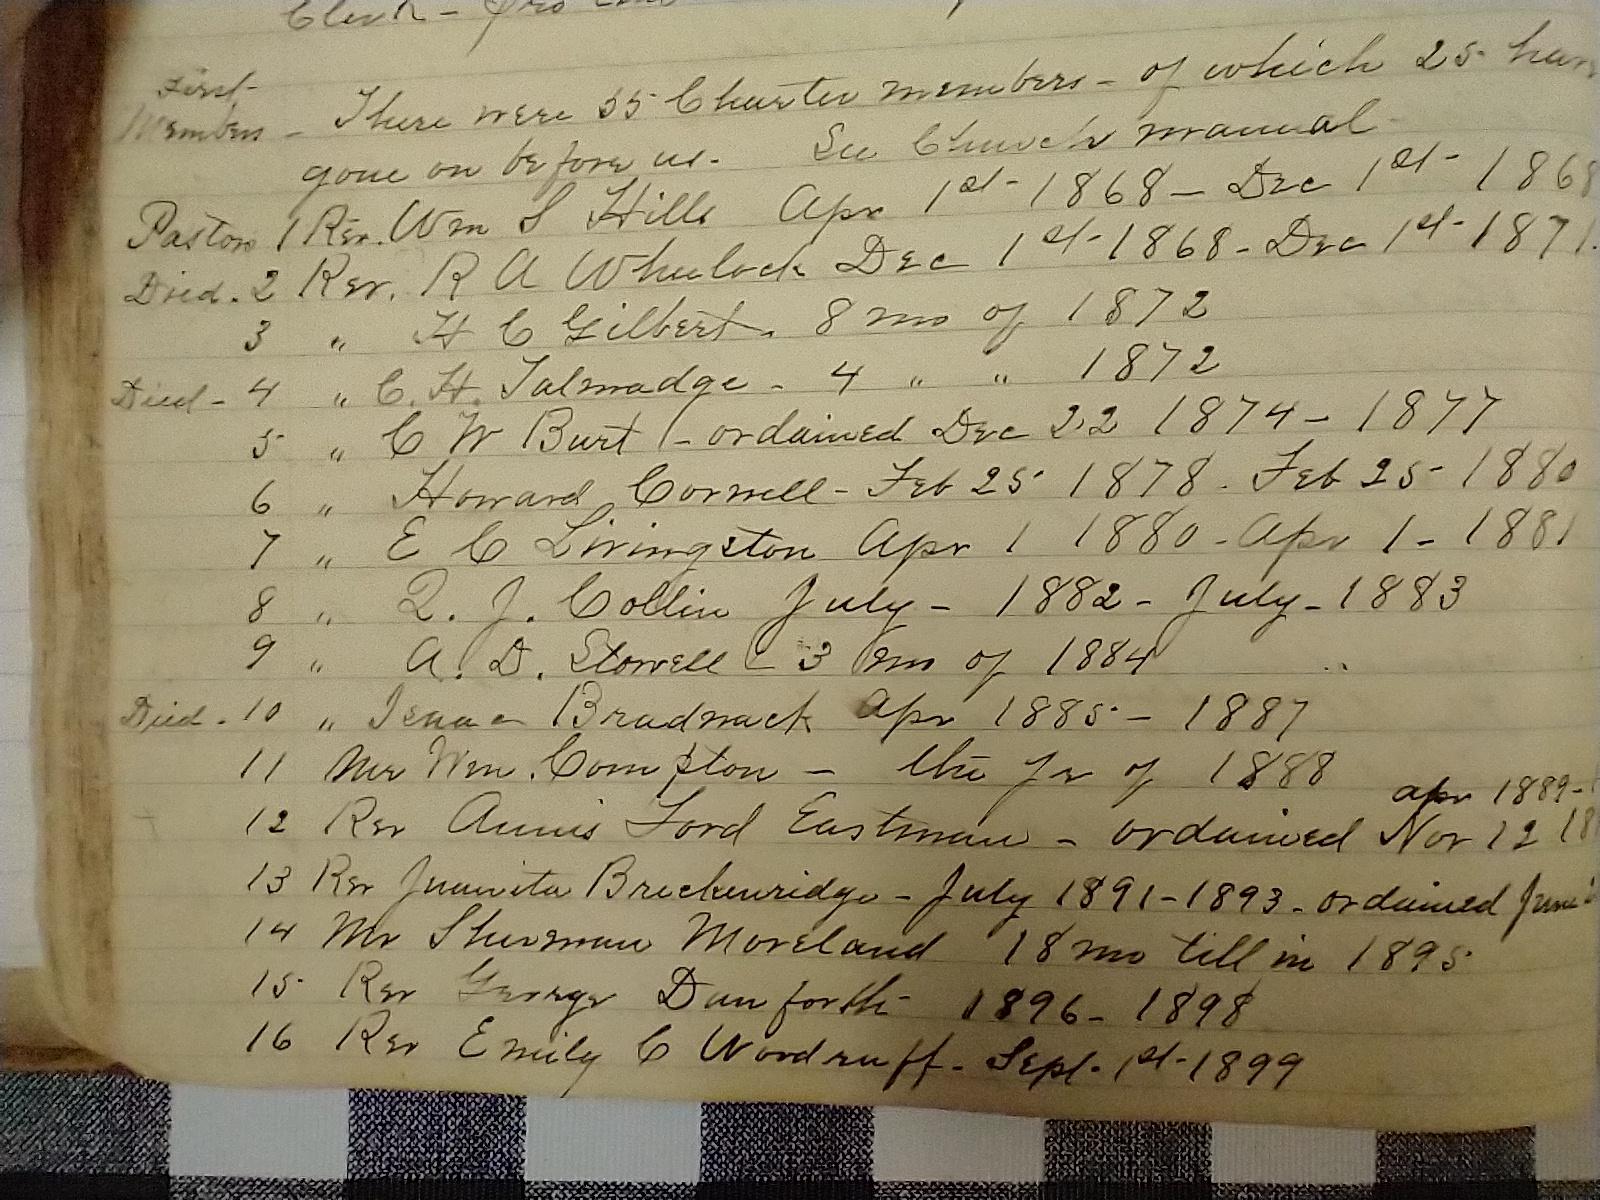 Clerk - Pro
First- Members - There were 55 Charter members - of which 25 have
gone on before us. See Church manual -
Pastors 1 Rev. Wm S Hills Apr 1st - 1868 - Dec 1st - 1868
Died - 2 Rev. R A Wheelock Dec 1st - 1868 - Dec 1st - 1871.
3 " H C Gilbert. 8 mo of 1872
Died - 4 " C. H. Talmadge - 4 " " 1872
5 " C W Burt - ordained Dec 22 1874 - 1877
6 " Howard Cornell - Feb 25 1878 - Feb 25 - 1880
7 " E C Livingston Apr 1 1880 - Apr 1 - 1881
8 " Q. J. Collin July - 1882 - July - 1883
9 " A. D. Stowell - 3 mo of 1884
Died - 10 " Isaac Bradnack Apr 1885 - 1887
11 Mr Wm. Compston - the yr of 1888
apr 1889 -
12 Rev Annis Ford Eastman - ordained Nov 12 18
13 Rev Juanita Breckenridge - July 1891 - 1893 - ordained June
14 Mr Sherman Moreland 18 mo till in 1895
15 Rev George Danforth - 1896 - 1898
16 Rev Emily C Woodruff - Sept. 1st - 1899